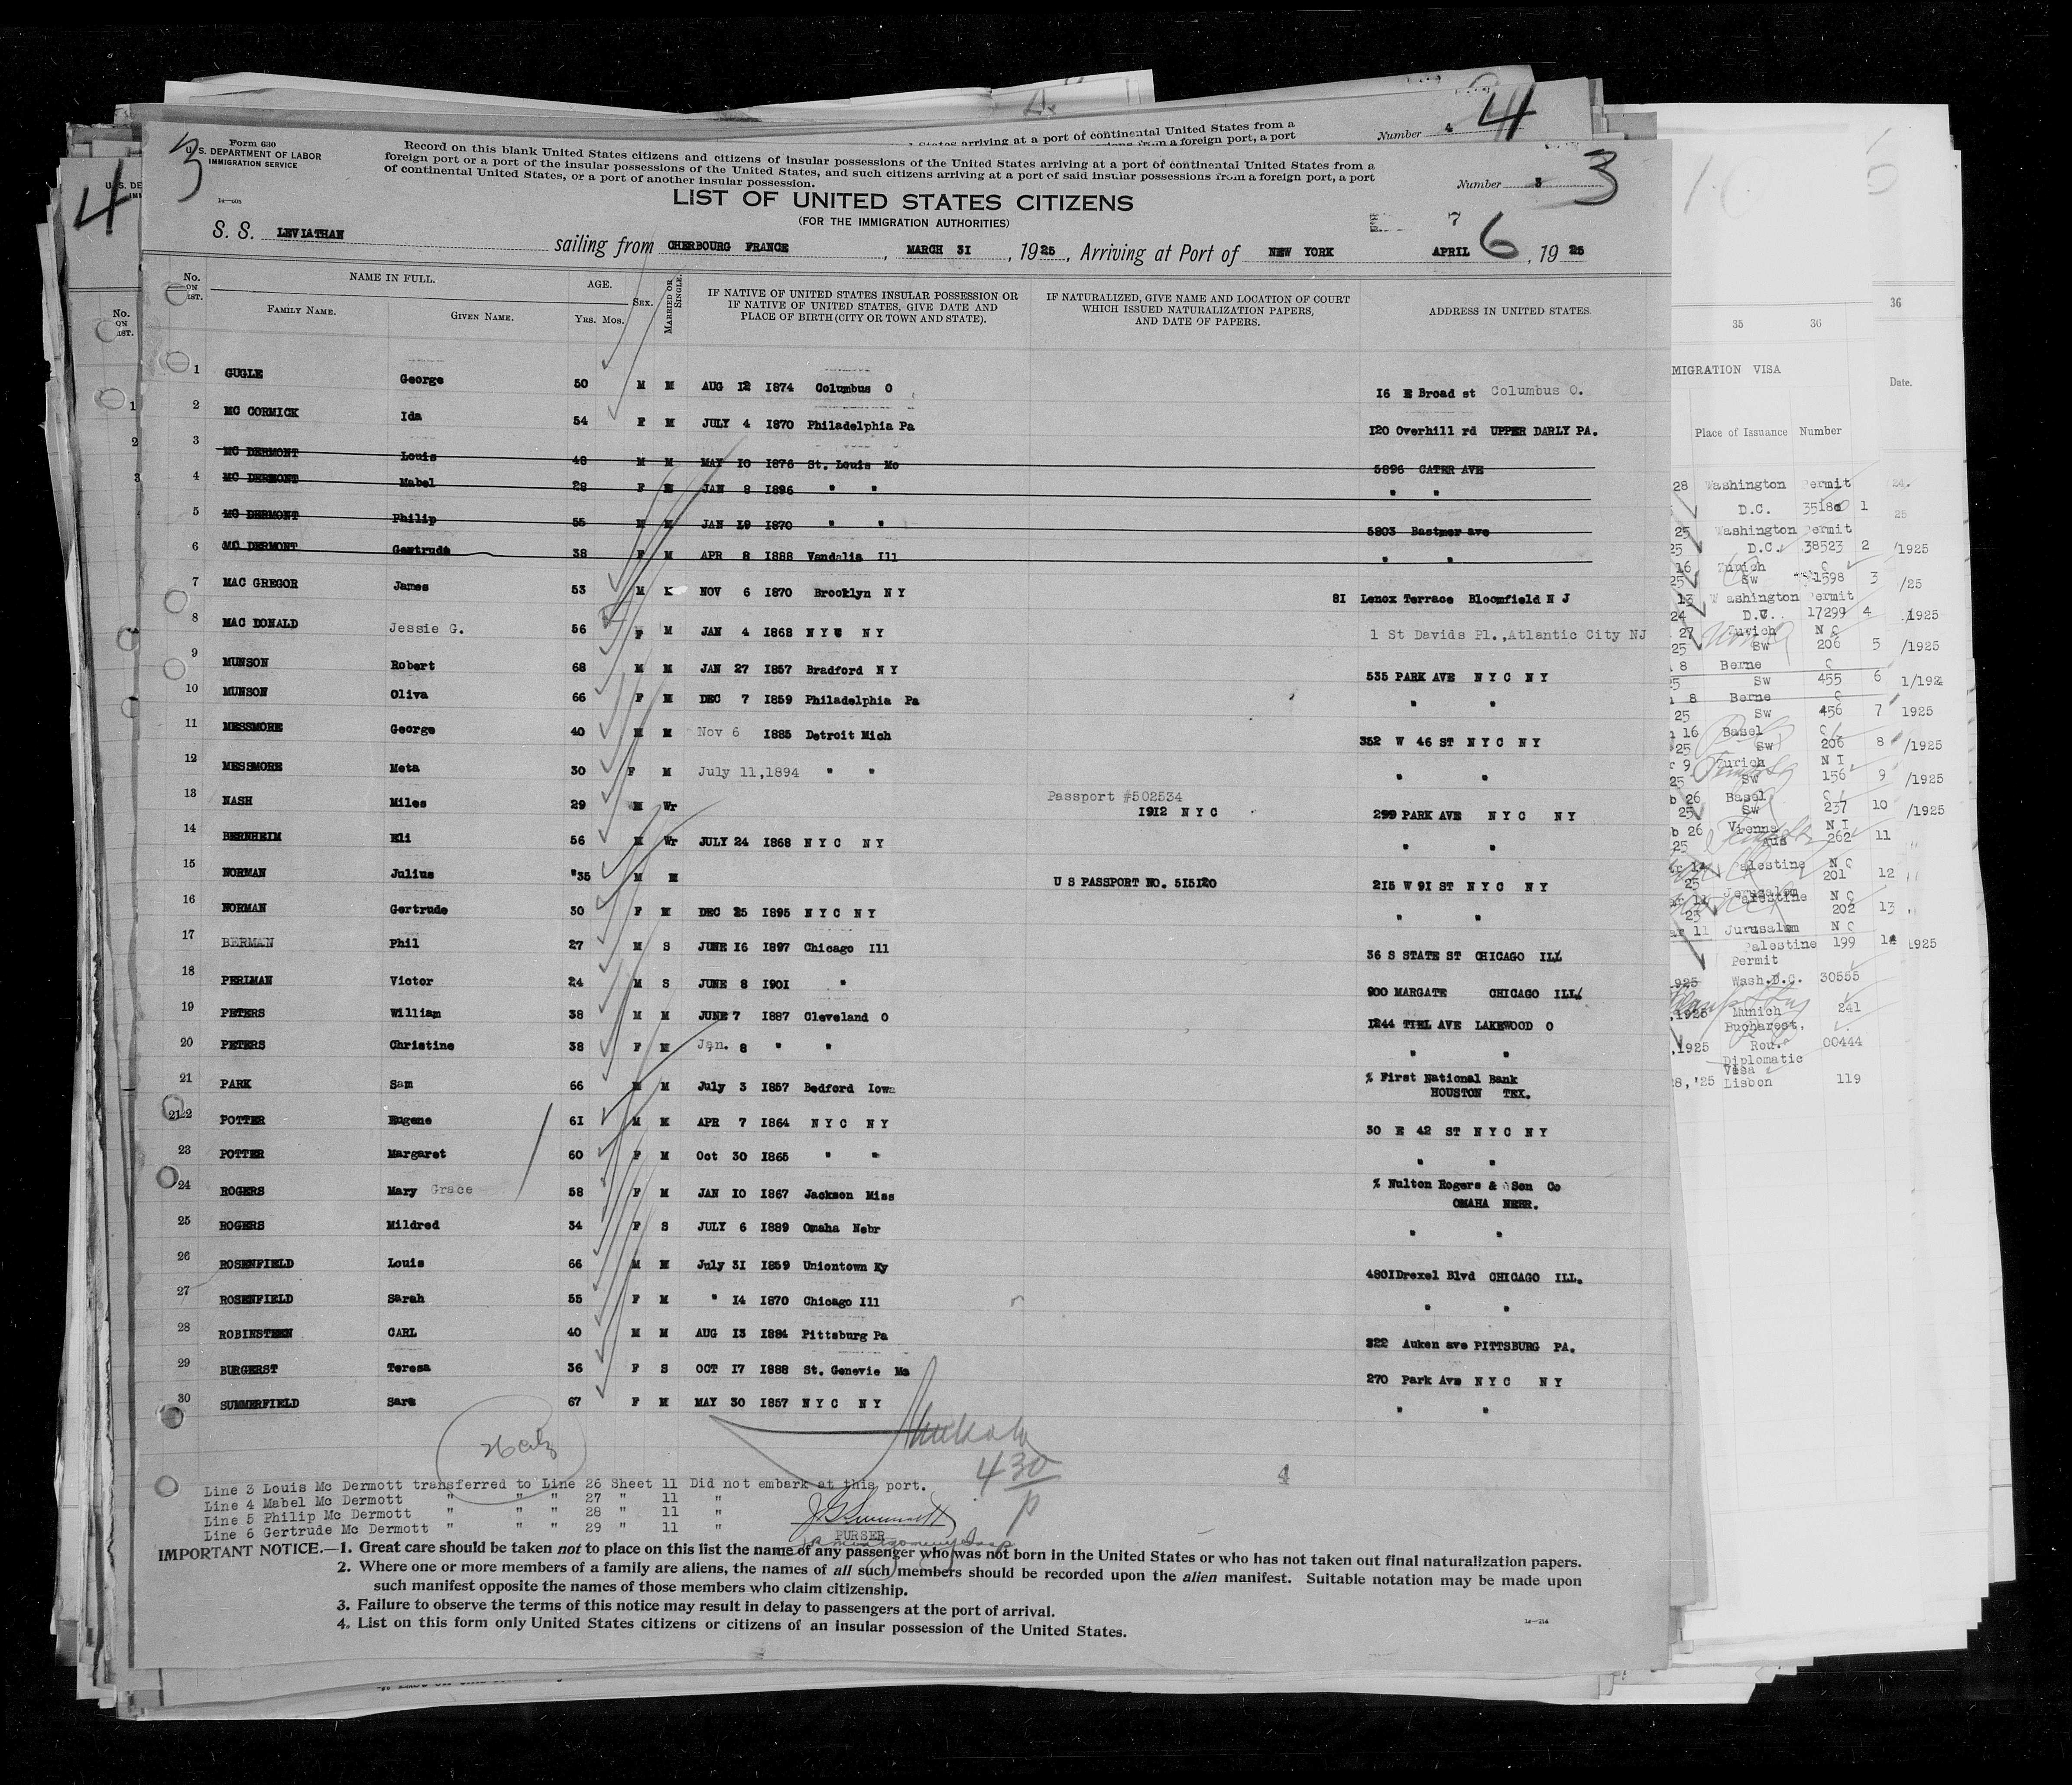 Form 630
U. S. DEPARTMENT OF LABOR
IMMIGRATION SERVICE
3
Record on this blank United States citizens and citizens of insular possessions of the United States arriving at a port of continental United States from a
foreign port or a port of the insular possessions of the United States, and such citizens arriving at a port of said insular possessions from a foreign port, a port
of continental United States, or a port of another insular possession.
Number 4 4
Number 3 3
LIST OF UNITED STATES CITIZENS
(FOR THE IMMIGRATION AUTHORITIES)
S. S. LEVIATHAN sailing from CHERBOURG FRANCE, MARCH 31, 1925, Arriving at Port of NEW YORK APRIL 6, 1925
7
No. ON LIST. NAME IN FULL. AGE. SEX. MARRIED OR SINGLE. IF NATIVE OF UNITED STATES INSULAR POSSESSION OR IF NATIVE OF UNITED STATES, GIVE DATE AND PLACE OF BIRTH (CITY OR TOWN AND STATE). IF NATURALIZED, GIVE NAME AND LOCATION OF COURT WHICH ISSUED NATURALIZATION PAPERS, AND DATE OF PAPERS. ADDRESS IN UNITED STATES.
FAMILY NAME. GIVEN NAME. YRS. MOS.
1 GUGLE George 50 M M AUG 12 1874 Columbus O 16 E Broad st Columbus O.
2 MC CORMICK Ida 54 F M JULY 4 1870 Philadelphia Pa 120 Overhill rd UPPER DARLY PA.
3 MC DERMONT Louis 48 M M MAY 10 1876 St. Louis Mo 5896 CATER AVE
4 MC DERMONT Mabel 28 F M JAN 8 1896 " " " "
5 MC DERMONT Philip 55 M M JAN 19 1870 " " 5803 Bastmer ave
6 MC DERMONT Gertrude 38 F M APR 8 1888 Vandalia Ill " "
7 MAC GREGOR James 53 M NOV 6 1870 Brooklyn N Y 81 Lenox Terrace Bloomfield N J
8 MAC DONALD Jessie G. 56 F M JAN 4 1868 N Y C N Y 1 St Davids Pl.,Atlantic City NJ
9 MUNSON Robert 68 M M JAN 27 1857 Bradford N Y 535 PARK AVE N Y C N Y
10 MUNSON Oliva 66 F M DEC 7 1859 Philadelphia Pa " "
11 MESSMORE George 40 M M Nov 6 1885 Detroit Mich 352 W 46 ST N Y C N Y
12 MESSMORE Meta 30 F M July 11,1894 " " " "
13 NASH Miles 29 M Wr Passport #502534 1912 N Y C 299 PARK AVE N Y C N Y
14 BERNHEIM Eli 56 M Wr JULY 24 1868 N Y C N Y " "
15 NORMAN Julius 35 M M U S PASSPORT NO. 515120 215 W 91 ST N Y C N Y
16 NORMAN Gertrude 30 F M DEC 25 1895 N Y C N Y " "
17 BERMAN Phil 27 M S JUNE 16 1897 Chicago Ill 36 S STATE ST CHICAGO ILL
18 PERLMAN Victor 24 M S JUNE 8 1901 " 900 MARGATE CHICAGO ILL.
19 PETERS William 38 M M JUNE 7 1887 Cleveland O 1244 TIEL AVE LAKEWOOD O
20 PETERS Christine 38 F M Jan. 8 " " " "
21 PARK Sam 66 M M July 3 1857 Bedford Iowa % First National Bank HOUSTON TEX.
22 POTTER Eugene 61 M M APR 7 1864 N Y C N Y 30 E 42 ST N Y C N Y
23 POTTER Margaret 60 F M Oct 30 1865 " " " "
24 ROGERS Mary Grace 58 F M JAN 10 1867 Jackson Miss % Nulton Rogers & Son Co OMAHA NEBR.
25 ROGERS Mildred 34 F S JULY 6 1889 Omaha Nebr " "
26 ROSENFIELD Louis 66 M M July 31 1859 Uniontown Ky 4801Drexel Blvd CHICAGO ILL.
27 ROSENFIELD Sarah 55 F M " 14 1870 Chicago Ill " "
28 ROBINSTEEN CARL 40 M M AUG 13 1884 Pittsburg Pa 322 Auken ave PITTSBURG PA.
29 BURGERST Teresa 36 F S OCT 17 1888 St. Genevie Mo 270 Park Ave N Y C N Y
30 SUMMERFIELD Sara 67 F M MAY 30 1857 N Y C N Y " "
430
4
Line 3 Louis Mc Dermott transferred to Line 26 Sheet 11 Did not embark at this port.
Line 4 Mabel Mc Dermott " " " 27 " 11 "
Line 5 Philip Mc Dermott " " " 28 " 11 "
Line 6 Gertrude Mc Dermott " " " 29 " 11 "
PURSER
IMPORTANT NOTICE.—1. Great care should be taken not to place on this list the name of any passenger who was not born in the United States or who has not taken out final naturalization papers.
2. Where one or more members of a family are aliens, the names of all such members should be recorded upon the alien manifest. Suitable notation may be made upon
such manifest opposite the names of those members who claim citizenship.
3. Failure to observe the terms of this notice may result in delay to passengers at the port of arrival.
4. List on this form only United States citizens or citizens of an insular possession of the United States.
35 36
36
MIGRATION VISA
Date.
Place of Issuance Number
28 Washington Permit
D.C. 1
25 Washington Permit
D.C. 38523 2 /1925
16 Zurich
Sw 1598 3 /25
13 Washington Permit
24 D.C. 17299 4 1925
27 Zurich N C
25 Sw 206 5 /1925
8 Berne C
Sw 455 6
8 Berne C
25 Sw 456 7 1925
16 Basel
25 Sw 206 8 /1925
9 Zurich N I
25 Sw 156 9 /1925
26 Basel
25 Sw 237 10 /1925
26 Vienna N I
25 Aus 262 11
Palestine N C
25 Jerusalem 201 12
Palestine N C
202 13
11 Jurusalem N C
Palestine 199 14 1925
Permit
1925 Wash.D.C. 30555
,1925 Munich 241
Bucharest,
,1925 Rou. 00444
Diplomatic
Visa
'25 Lisbon 119